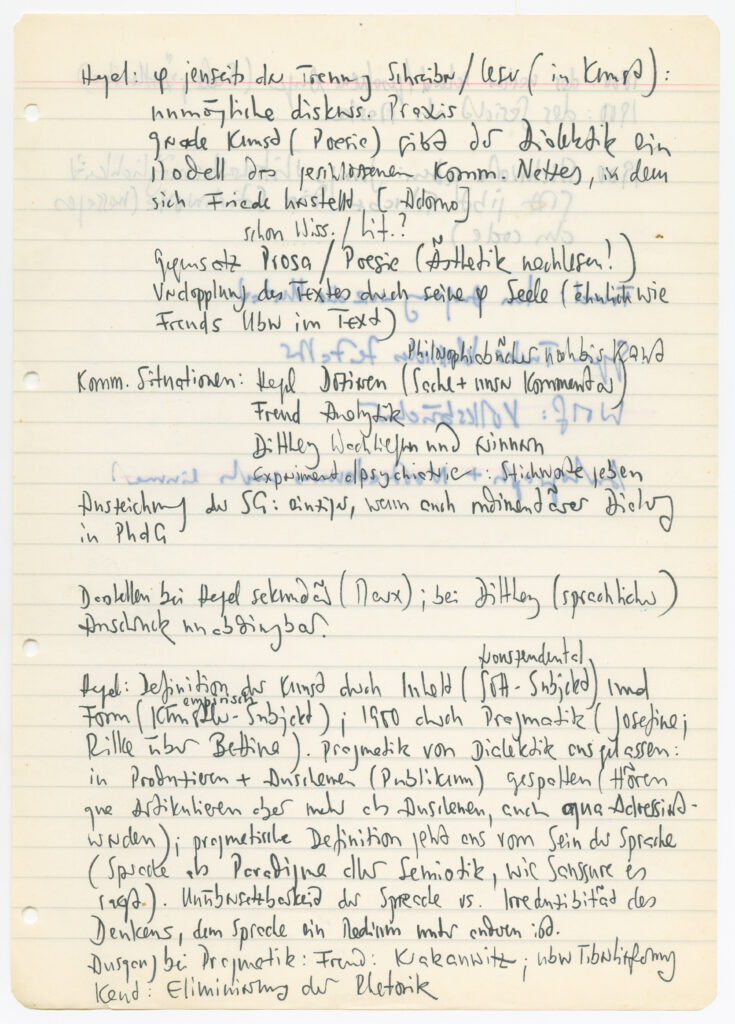 Hegel: φ jenseits der Trennung Schreiber/Leser (in Kunst):
unmögliche diskurs. Praxis
grade Kunst (Poesie) gibt der Dialektik ein
Modell des geschlossenen Komm. Netzes, in dem
sich Friede herstellt [Adorno]
schon Wiss./Lit.?
Gegensatz Prosa/Poesie (Ästhetik nachlesen!)
Verdopplung des Textes durch seine φ Seele (ähnlich wie
Freuds Ubw im Text)
Philosophiebücher nur bis Kant
Komm. Situationen: Hegel Dozieren (Sache + unser Kommentar)
Freud Analytik
Dilthey und Erinnern
Experimentalpsychiatrie: Stichworte geben
Auszeichnung der SG: einziger, wenn auch rudimentärer Dialog
in PhdG
Darstellen bei Hegel sekundär (Marx); bei Dilthey (sprachlicher)
Ausdruck unabdingbar.
transzendental
Hegel: Definition der Kunst durch Inhalt (Gott-Subjekt) und
empirisch
Form (Künstler-Subjekt); 1900 durch Pragmatik (Josefine;
Rilke über Bettine). Pragmatik von Dialektik ausgelassen:
in Produzieren + Anschauen (Publikum) gespalten (Hören
qua Artikulieren aber mehr als Anschauen, auch qua Adressiert-
werden); pragmatische Definition geht aus vom Sein der Sprache
(Sprache als Paradigma aller Semiotik, wie Saussure es
sagt). Unübersetzbarkeit der Sprache vs. Irreduzibität des
Denkens, dem Sprache ein Medium unter andern ist.
Ausgang bei Pragmatik: Freud: Krakauwitz; ubw
Kant: Eliminierung der Rhetorik